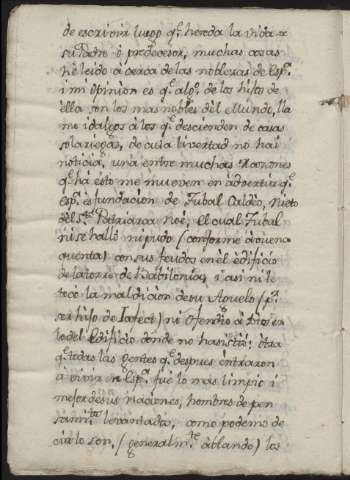 de escrivir luego q.e hereda la vida a
su Padre ò predecesor, muchas cosas
hè leido à cerca de las noblezas de Esp.a
i mi opinion es q.e alg.s de los hijos de
ella son los mas nobles del Mundo, lla
mo idalgos à los q.e descienden de casas
solariegas, de cuia livertad no hai
noticia, una entre muchas razones
q.e hà esto me mueven es àdvertir q.e
Esp.a es fundacion de Tubal Caldeo, Nieto
del S.to Patriarca Noè, el cual Tubal
ni se hallò ni pudo (conforme à buena
quenta) con sus feudos en el èdificio
de la torre de Babilonia, i asi ni le
tocò la maldicion de su Abuelo (p.r
ser hijo de Iafect) ni ofendiò à Dios en
lo del Edificio donde no hasistiò: otra
q.e todas las gentes q.e despues entraron
à vivir en Esp.a fue lo mas limpio i
mejor de sus naciones, hombres de pen
sami.tos levantados, como podemos
decir lo son, (generalm.te àblando) los